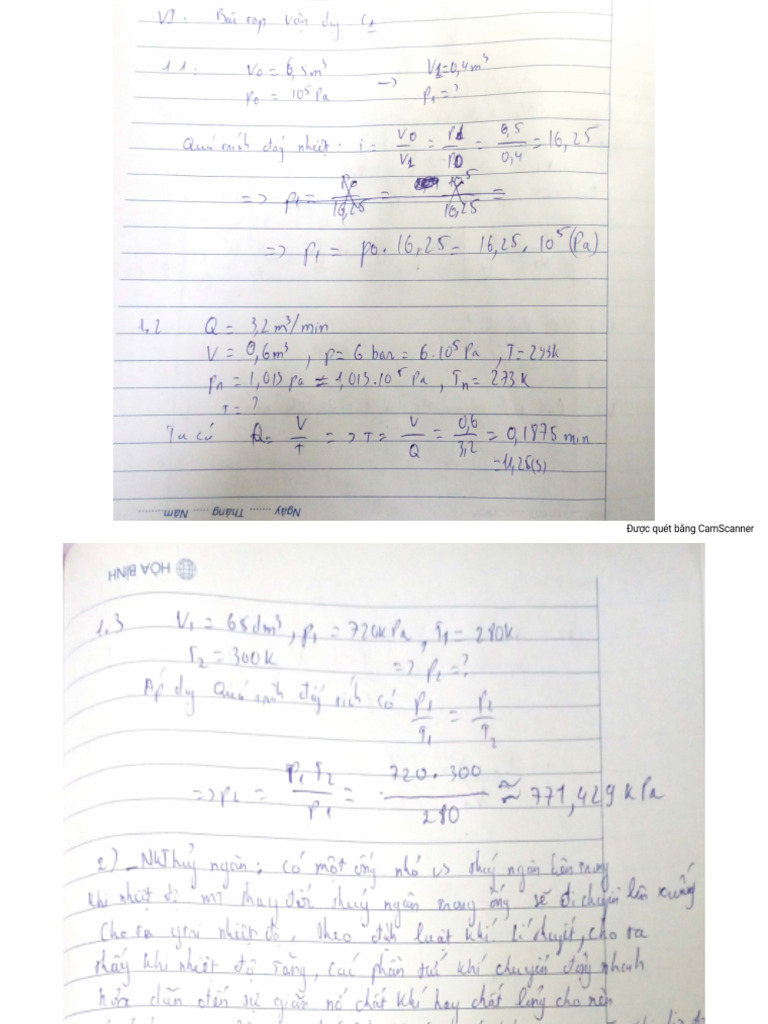 VI. Bài tập vận dụng C1
1.1: V0 = 6,5m³ → V1 = 0,4m³
p0 = 10⁵ Pa p1 = ?
Quá trình đẳng nhiệt: i = V0/V1 = p1/p0 = 6,5/0,4 = 16,25
=> p1 = p0/16,25 = 10⁵/16,25 =
=> p1 = p0 . 16,25 = 16,25 . 10⁵ (Pa)
1.2 Q = 3,2 m³/min
V = 0,6m³, p = 6 bar = 6.10⁵ Pa, T = 293k
pn = 1,013 pa = 1,013.10⁵ Pa, Tn = 273k
T = ?
Ta có Q = V/T => T = V/Q = 0,6/3,2 = 0,1875 min
= 11,25(s)
Ngày ........ Tháng ..... Năm ............
Được quét bằng CamScanner
HÒA BÌNH
1.3 V1 = 65dm³, p1 = 720kPa, T1 = 280k
T2 = 300k => p2 = ?
Áp dụng Quá trình đẳng tích có p1/T1 = p2/T2
=> p2 = p1 T2/p1 = 720.300/280 ≈ 771,429 kPa
2) - Nk thuỷ ngân: có một ống nhỏ thuỷ ngân bên trong
khi nhiệt độ mt thay đổi thuỷ ngân trong ống sẽ di chuyển lên xuống
cho ra giá trị nhiệt độ, theo định luật khí lí thuyết, cho ra
thấy khi nhiệt độ tăng, các phân tử khí chuyển động nhanh
hơn dẫn đến sự giãn nở chất khí hay chất lỏng cho nên